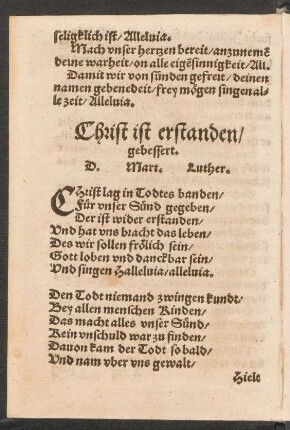 seligklich ist/ Alleluia.
Mach vnser hertzen bereit/ anzunemē
deine warheit/ on alle eigēsinnigkeit/ All.
Damit wir von sünden gefreit/ deinen
namen gebenedeit/ frey mögen singen al-
le zeit/ Alleluia.
Christ ist erstanden/
gebessert.
D. Mart. Luther.
CHrist lag in Todtes banden/
Für vnser Sünd gegeben/
Der ist wider erstanden/
Vnd hat vns bracht das leben/
Des wir sollen frölich sein/
Gott loben vnd danckbar sein/
Vnd singen Halleluia/ alleluia.
Den Todt niemand zwingen kundt/
Bey allen menschen Kinden/
Das macht alles vnser Sünd/
Kein vnschuld war zu finden/
Dauon kam der Todt so bald/
Vnd nam vber vns gewalt/
Hielt